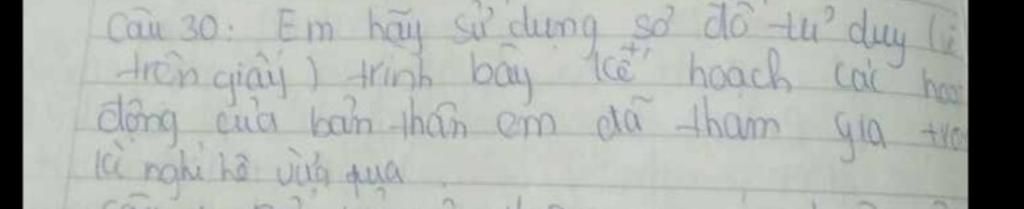 Câu 30: Em hãy sử dụng sơ đồ tư duy
trên giấy) trình bày kế hoạch các
động của bản thân em đã tham gia
kì nghỉ hè vừa qua